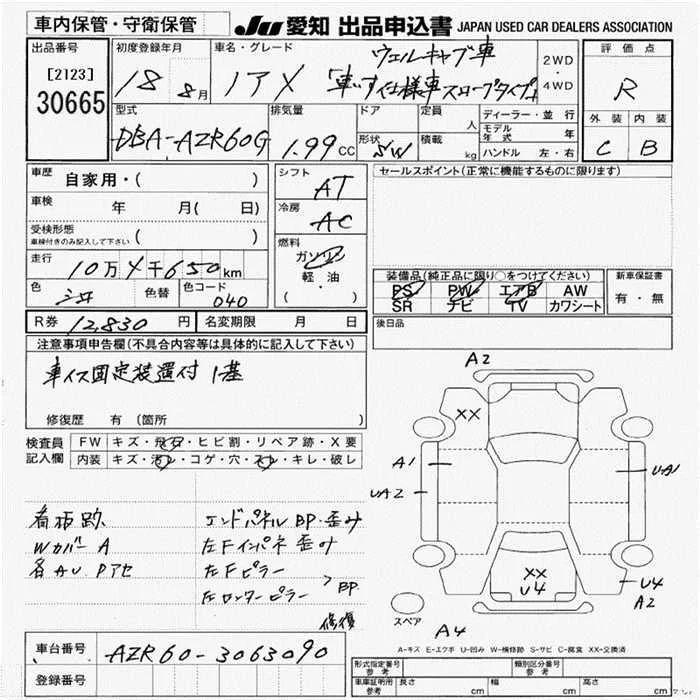 車内保管・守衛保管
JU 愛知 出品申込書 JAPAN USED CAR DEALERS ASSOCIATION
出品番号
[2123]
30665
初度登録年月
18 8月
車名・グレード
ノア X
ウェルキャブ車
「車いす仕様車スロープタイプ」
2WD
・
4WD
評価点
R
外装 内装
C B
型式
DBA-AZR60G
排気量
1.99 CC
ドア
形状
SW
定員
人
積載
kg
ディーラー・並行
モデル年式 年
ハンドル 左・右
車歴 自家用・( )
車検 年 月( 日)
受検形態
車検付きのみ記入して下さい ( )
走行 10万 4千650 km
色 色替
色コード 040
シフト
AT
冷房
AC
燃料
ガソリン
・
軽・油
( )
セールスポイント(正常に機能するものに限ります)
装備品(純正品に限り○をつけてください)
PS PW エアB AW
SR ナビ TV カワシート
新車保証書
有・無
R券 12,830 円
名変期限 月 日
後日品
注意事項申告欄(不具合内容等は具体的に記入して下さい)
車イス固定装置付 1基
修復歴 有 (箇所 )
検査員
記入欄
FW キズ・飛石・ヒビ割・リペア跡・X要
内装 キズ・汚レ・コゲ・穴・スレ・キレ・破レ
看板跡
Wカバー A
各AU.Pアセ
エンドパネル BP・歪み
左Fインパネ 歪み
左Fピラー
左センターピラー
> BP
修復
A2
XX
A1
UA2
UA1
XX
U4
U4
A2
A4
スペア
A-キズ E-エクボ U-凹み W-補修跡 S-サビ C-腐食 XX-交換済
車台番号 AZR60-3063090
登録番号
形式指定番号
参考
類別区分番号
参考
車庫証明用
参考
長さ cm 幅 cm 高さ cm